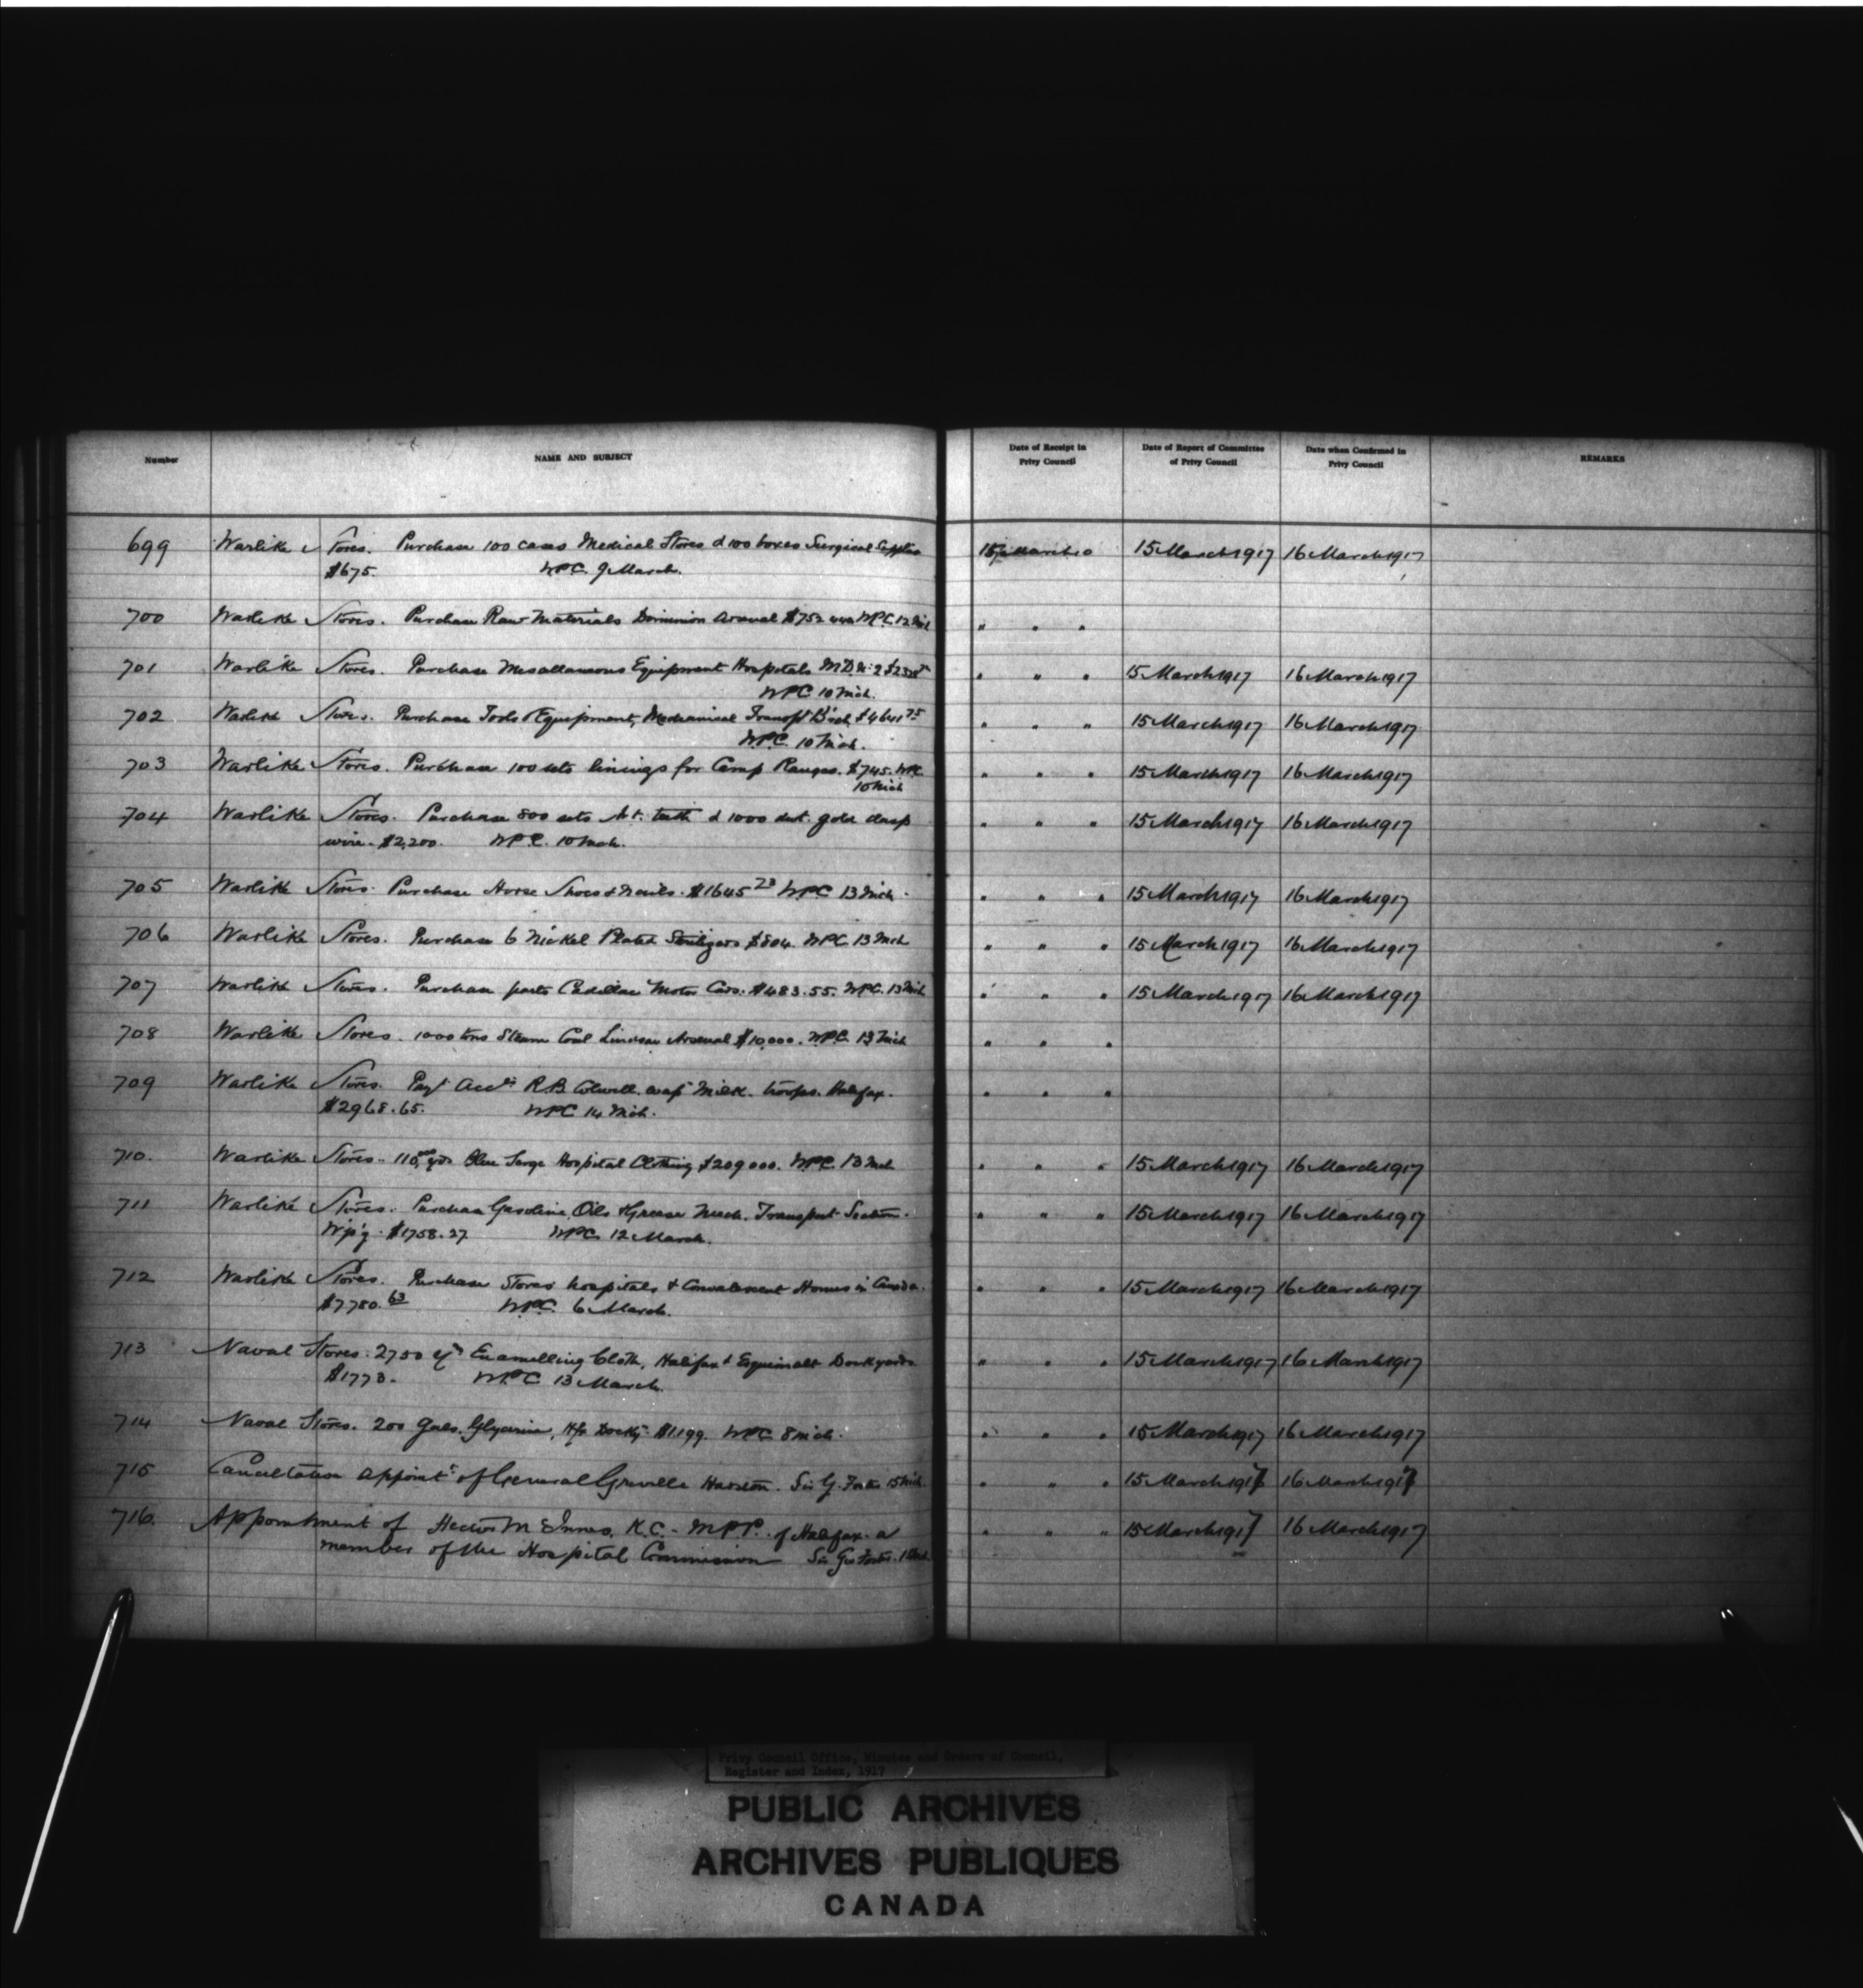 Number NAME AND SUBJECT Date of Receipt in Privy Council Date of Report of Committee of Privy Council Date when Confirmed in Privy Council REMARKS
699 Warlike Stores. Purchase 100 cases Medical Stores & 100 boxes Surgical Supplies 15 March 1917 16 March 1917
$675. WPC 9 March.
700 Warlike Stores. Purchase Raw Materials Dominion Arsenal WPC 12 Mch " " "
701 Warlike Stores. Purchase Miscellaneous Equipment Hospitals M.D. No 2 " " " 15 March 1917 16 March 1917
WPC 10 Mch.
702 Warlike Stores. Purchase Tools & Equipment, Mechanical Transpt Bch. $4641 75 " " " 15 March 1917 16 March 1917
WPC 10 Mch.
703 Warlike Stores. Purchase 100 sets linings for Camp Ranges. $745. WPC " " " 15 March 1917 16 March 1917
10 Mch
704 Warlike Stores. Purchase 800 sets teeth & 1000 dwt. gold clasp " " " 15 March 1917 16 March 1917
wire. $2,200. WPC. 10 Mch.
705 Warlike Stores. Purchase Horse Shoes & nails. $1645 73 WPC 13 Mch. " " " 15 March 1917 16 March 1917
706 Warlike Stores. Purchase 6 Nickel Plated Sterilizers $804. WPC 13 Mch " " " 15 March 1917 16 March 1917
707 Warlike Stores. Purchase parts Cadillac Motor Cars. $483.55. WPC. 13 Mch " " " 15 March 1917 16 March 1917
708 Warlike Stores. 1000 tons Steam Coal Lindsay Arsenal $10,000. WPC 13 Mch " " "
709 Warlike Stores. Payt Accts R.B. Colwell. evap Milk. troops. Halifax. " " "
$2968.65. WPC 14 Mch.
710. Warlike Stores. 110,000 yds Blue Serge Hospital Clothing $209000. WPC 13 Mch " " " 15 March 1917 16 March 1917
711 Warlike Stores. Purchase Gasoline, Oils & Grease Mech. Transport Section. " " " 15 March 1917 16 March 1917
Wp'g. $1758.27 WPC 12 March.
712 Warlike Stores. Purchase Stores hospitals & Convalescent Homes in Canada. " " " 15 March 1917 16 March 1917
$7780.63 WPC. 6 March.
713 Naval Stores. 2750 yds Enamelling Cloth, Halifax & Esquimalt Dockyards " " " 15 March 1917 16 March 1917
$1773. WPC 13 March.
714 Naval Stores. 200 Gals. Glycerine, Hfx Dockyd. $1.199. WPC 8 Mch. " " " 15 March 1917 16 March 1917
715 Cancellation appointt of General Greville Harston. Sir G. Foster 15 Mch. " " " 15 March 1917 16 March 1917
716. Appointment of Hector McInnes, K.C. - M.P.P. of Halifax. a " " " 15 March 1917 16 March 1917
member of the Hospital Commission Sir Geo Foster.
Privy Council Office, Minutes and Orders of Council,
Register and Index, 1917
PUBLIC ARCHIVES
ARCHIVES PUBLIQUES
CANADA